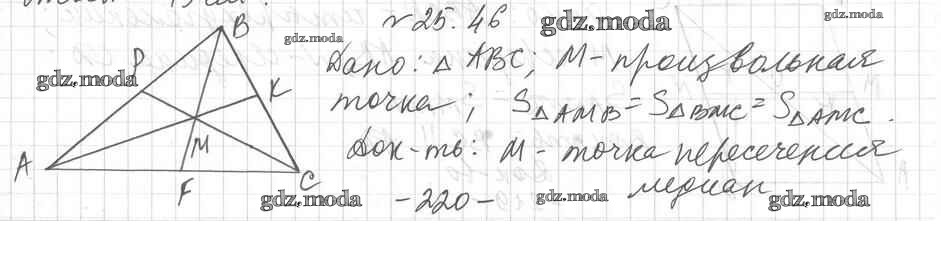 № 25.46
gdz.moda
gdz.moda
gdz.moda
B
D
gdz.moda
K
A
M
F
C
Дано: △ ABC; M - произвольная
точка; S△AMB = S△BMC = S△AMC.
Док-ть: M - точка пересечения
медиан
gdz.moda
- 220 -
gdz.moda
gdz.moda